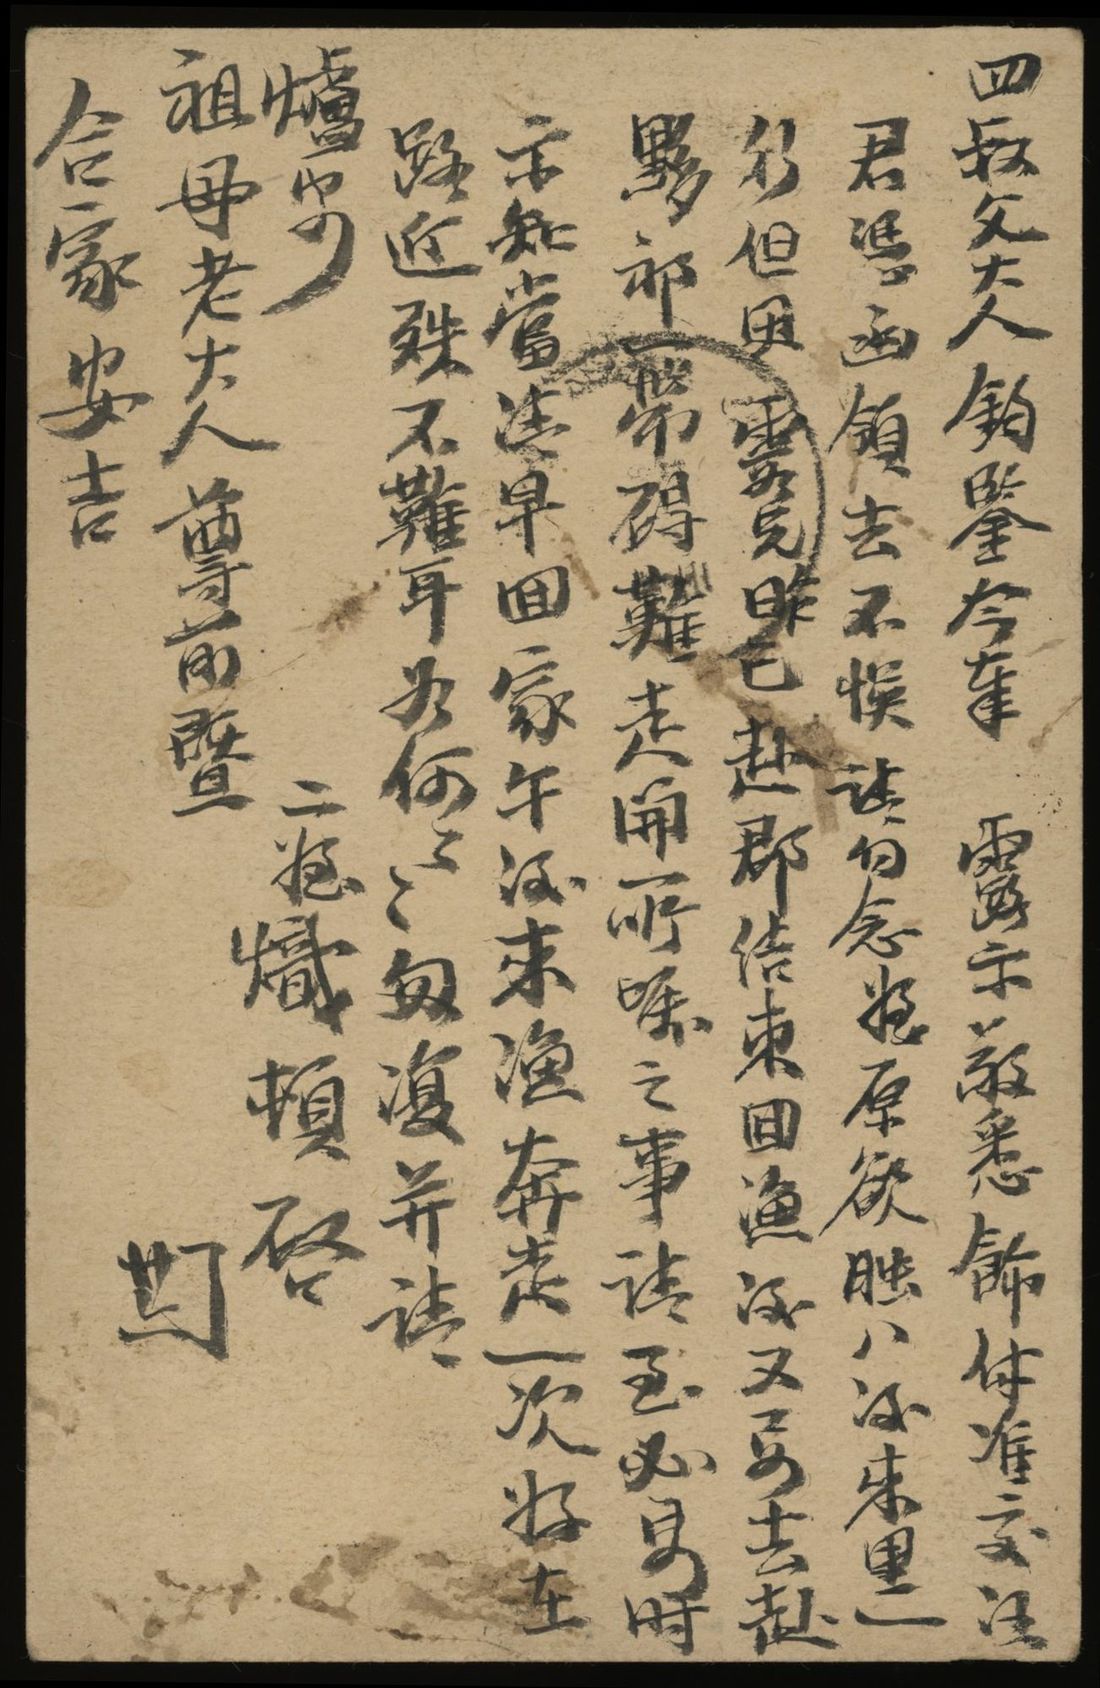 四叔父大人鈞鑒今奉 露示敬悉飾件准交汪
君憑函領去不悞請勿念姪原欲臘八後來里一
行但因 霞兄昨已赴郡結束回漁後又要去赴
黟祁一帶碍難走開所囑之事請至必要時
示知當請早回家午後來漁奔走一次好在
路近殊不難耳如何〻匆復并請
爐安
祖母老大人尊前暨
合家安吉
二姪熾頓啓